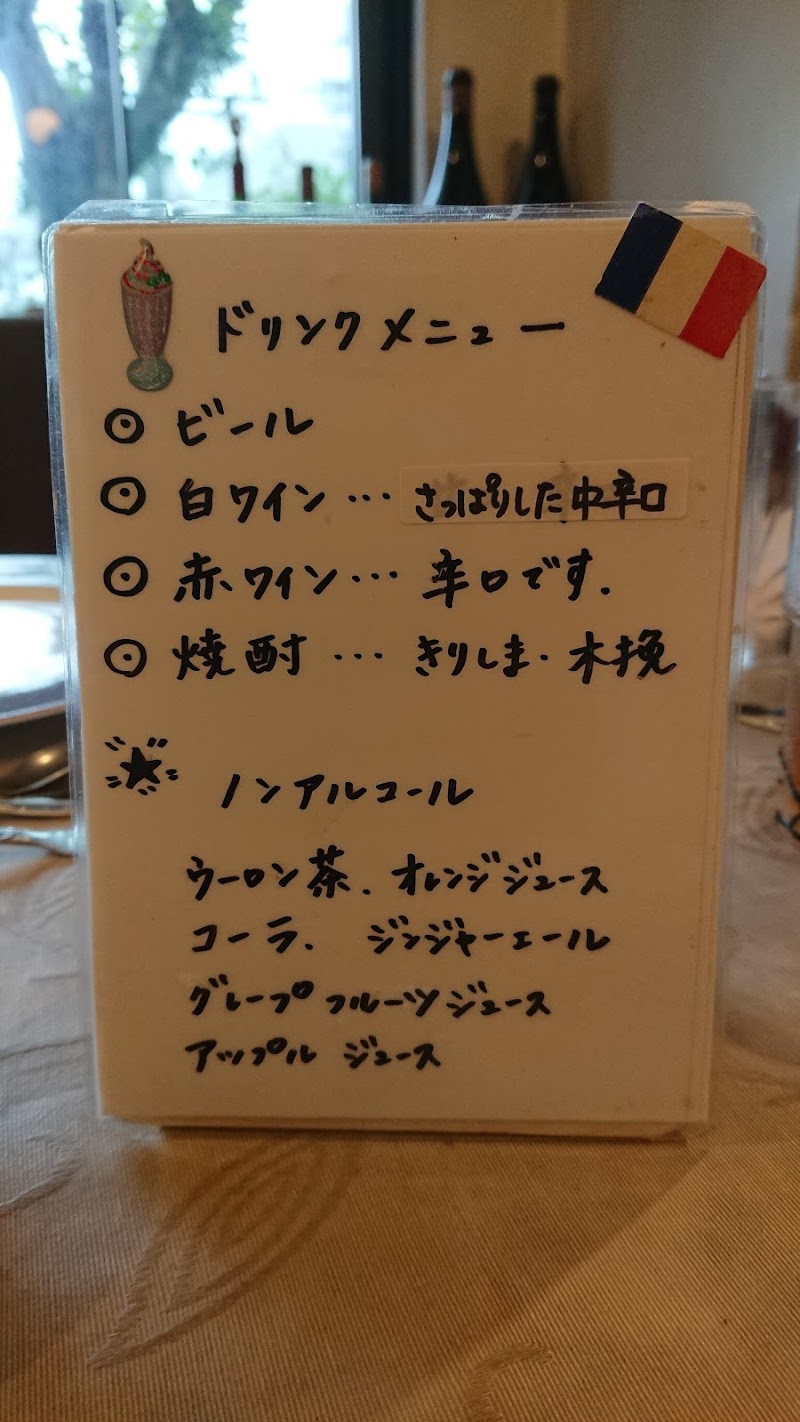 ドリンクメニュー
◎ ビール
◎ 白ワイン … さっぱりした中辛口
◎ 赤ワイン … 辛口です.
◎ 焼酎 … きりしま・木挽
★ ノンアルコール
ウーロン茶. オレンジジュース
コーラ. ジンジャーエール
グレープフルーツジュース
アップル ジュース